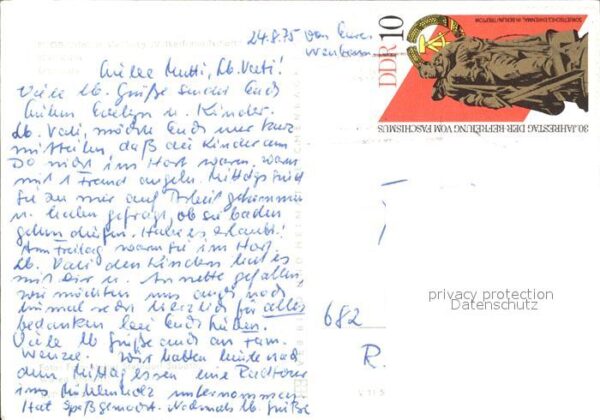 24.8.75 von Eurer
Liebe Mutti, lb. Vati!
Viele lb. Grüße sendet Euch
Evelyn u. Kinder.
Lb. Vati, möchte Euch nur kurz
mitteilen, daß die Kinder am
Do nicht im Hort waren, waren
mit 1 Freund angeln. Mittags sind
sie zu mir auf Arbeit gekommen
u. haben gefragt, ob sie baden
gehen dürfen. Habe es erlaubt!
Am Freitag waren sie im Hort.
Lb. Vati den Kindern hat es
mit Dir u. Annette gefallen,
wir möchten uns auch noch
einmal recht herzlich für alles
bedanken bei Euch beiden.
Viele lb Grüße auch an Fam.
Wenzel. Wir hatten heute nach
dem Mittagessen eine Radtour
ins Mühlenholz unternommen
Hat Spaß gemacht. Nochmals lb. Grüße
DDR 10
SOWJETISCHES EHRENMAL IN BERLIN-TREPTOW
30. JAHRESTAG DER BEFREIUNG VOM FASCHISMUS
privacy protection
Datenschutz
682
R.